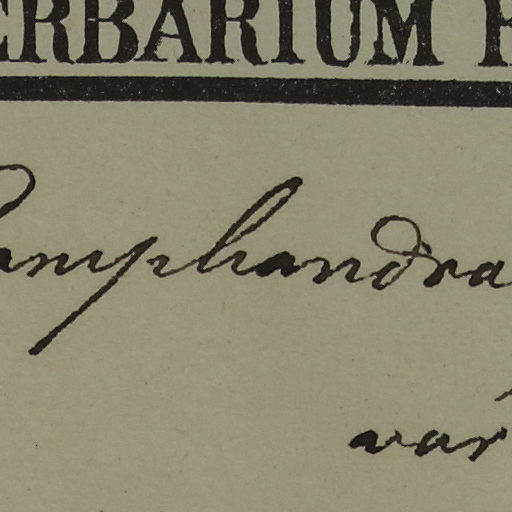 ERBARIUM
Gamphandra
var